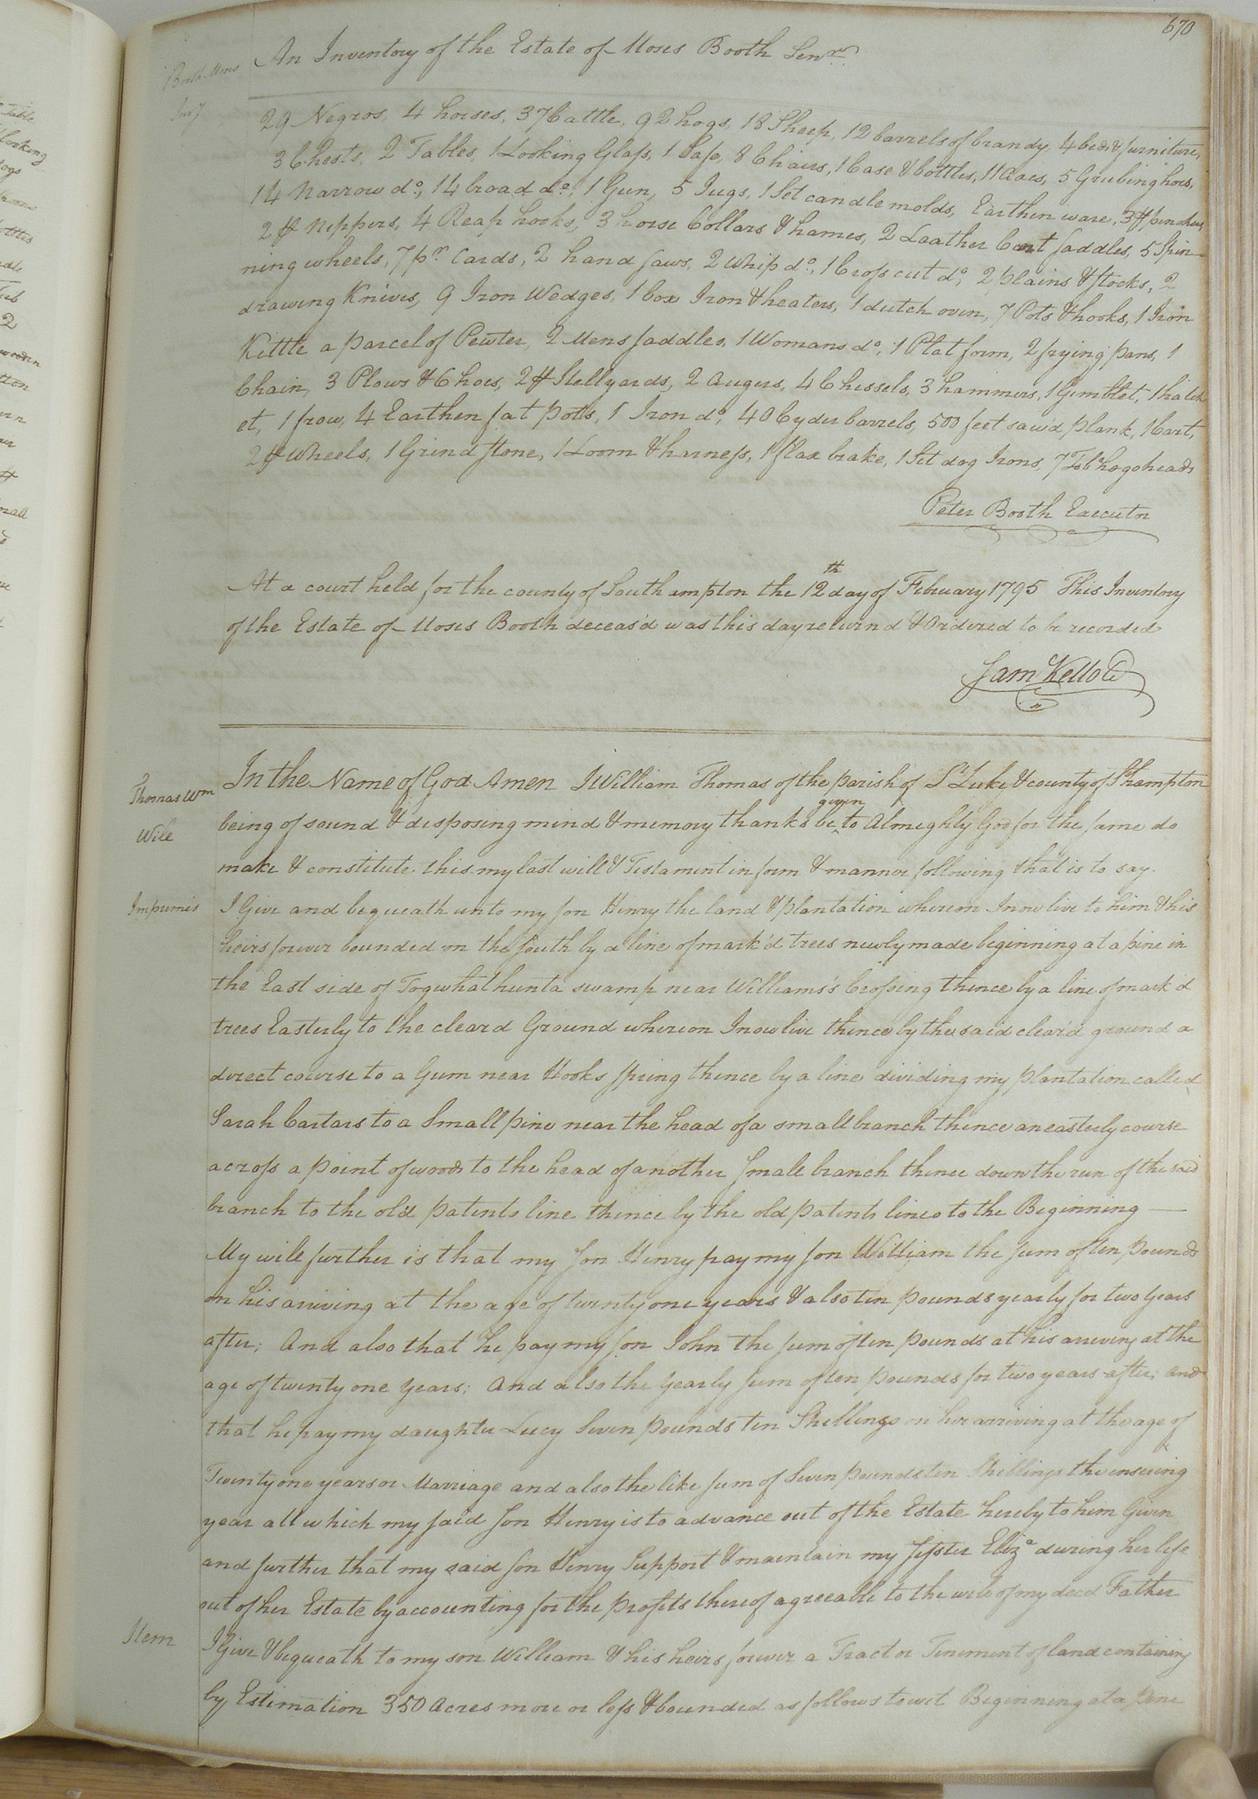 670
An Inventory of the Estate of Moses Booth Senr.
Booth Moses
Invy
29 Negros, 4 horses, 37 Cattle, 92 hogs, 18 Sheep, 12 barrels of brandy, 4 beds & furniture,
3 Chests, 2 Tables, 1 Looking Glass, 1 Safe, 8 Chairs, 1 Case & bottles, 11 Axes, 5 Grubing hoes,
14 Narrow do., 14 broad do., 1 Gun, 5 Jugs, 1 Set candle molds, Earthen ware, 3 pr
2 pr Nippers, 4 Reap hooks, 3 horse Collars & hames, 2 Leather Cart saddles, 5 Spin-
ning wheels, 7 pr. Cards, 2 hand saws, 2 Whip do., 1 Cross cut do, 2 plains & stocks, 2
drawing Knives, 9 Iron Wedges, 1 box Iron & heaters, 1 dutch oven, 7 Pots & hooks, 1 Iron
Kittle a parcel of Pewter, 2 Mens saddles, 1 Womans do., 1 Plat form, 2 frying pans, 1
Chain, 3 Plows & 6 hoes, 2 pr Stellyards, 2 Augers, 4 Chissels, 3 hammers, 1 Gimblet, 1 hatch
et, 1 frow, 4 Earthen fat potts, 1 Iron do, 40 Cyder barrels, 500 feet saw'd plank, 1 Cart,
2 pr Wheels, 1 Grind stone, 1 Loom & harness, 1 flax brake, 1 Set dog Irons, 7 Tob hogsheads
Peter Booth Executor
At a court held for the county of Southampton the 12th day of February 1795 This Inventory
of the Estate of Moses Booth deceas'd was this day return'd & Ordered to be recorded
Sam Kello C
Thomas Wm
Will
In the Name of God Amen I William Thomas of the parish of St Luke & county of S'hampton
being of sound & disposing mind & memory thanks be given to Almighty God for the same do
make & constitute this my last will & Testament in form & manner following that is to say.
Imprimis
I Give and bequeath unto my son Henry the land & plantation whereon I now live to him & his
heirs forever bounded on the south by a line of mark'd trees newly made beginning at a pine in
the East side of Togwhathunta swamp near Williams's Crossing thence by a line of mark'd
trees Easterly to the cleard Ground whereon I now live thence by the said clear'd ground a
direct course to a Gum near Hooks spring thence by a line dividing my plantation called
Sarah Cartars to a Small pine near the head of a small branch thence an easterly course
across a point of woods to the head of another small branch thence down the run of the said
branch to the old patents line thence by the old patents lines to the Beginning —
My will further is that my son Henry pay my son William the sum of ten pounds
on his arriving at the age of twenty one years & also ten pounds yearly for two years
after; And also that he pay my son John the sum of ten pounds at his arriving at the
age of twenty one years; And also the yearly sum of ten pounds for two years after; and
that he pay my daughter Lucy Seven pounds ten Shillings on her arriving at the age of
Twenty one years or Marriage and also the like sum of Seven pounds ten Shillings the ensuing
year all which my said son Henry is to advance out of the Estate hereby to him Given
and further that my said son Henry Support & maintain my sister Eliza during her life
out of her Estate by accounting for the profits thereof agreeable to the will of my decd Father
Item
I Give & bequeath to my son William & his heirs forever a Tract or Tenement of land containing
by Estimation 350 acres more or less & bounded as follows towit Beginning at a pine